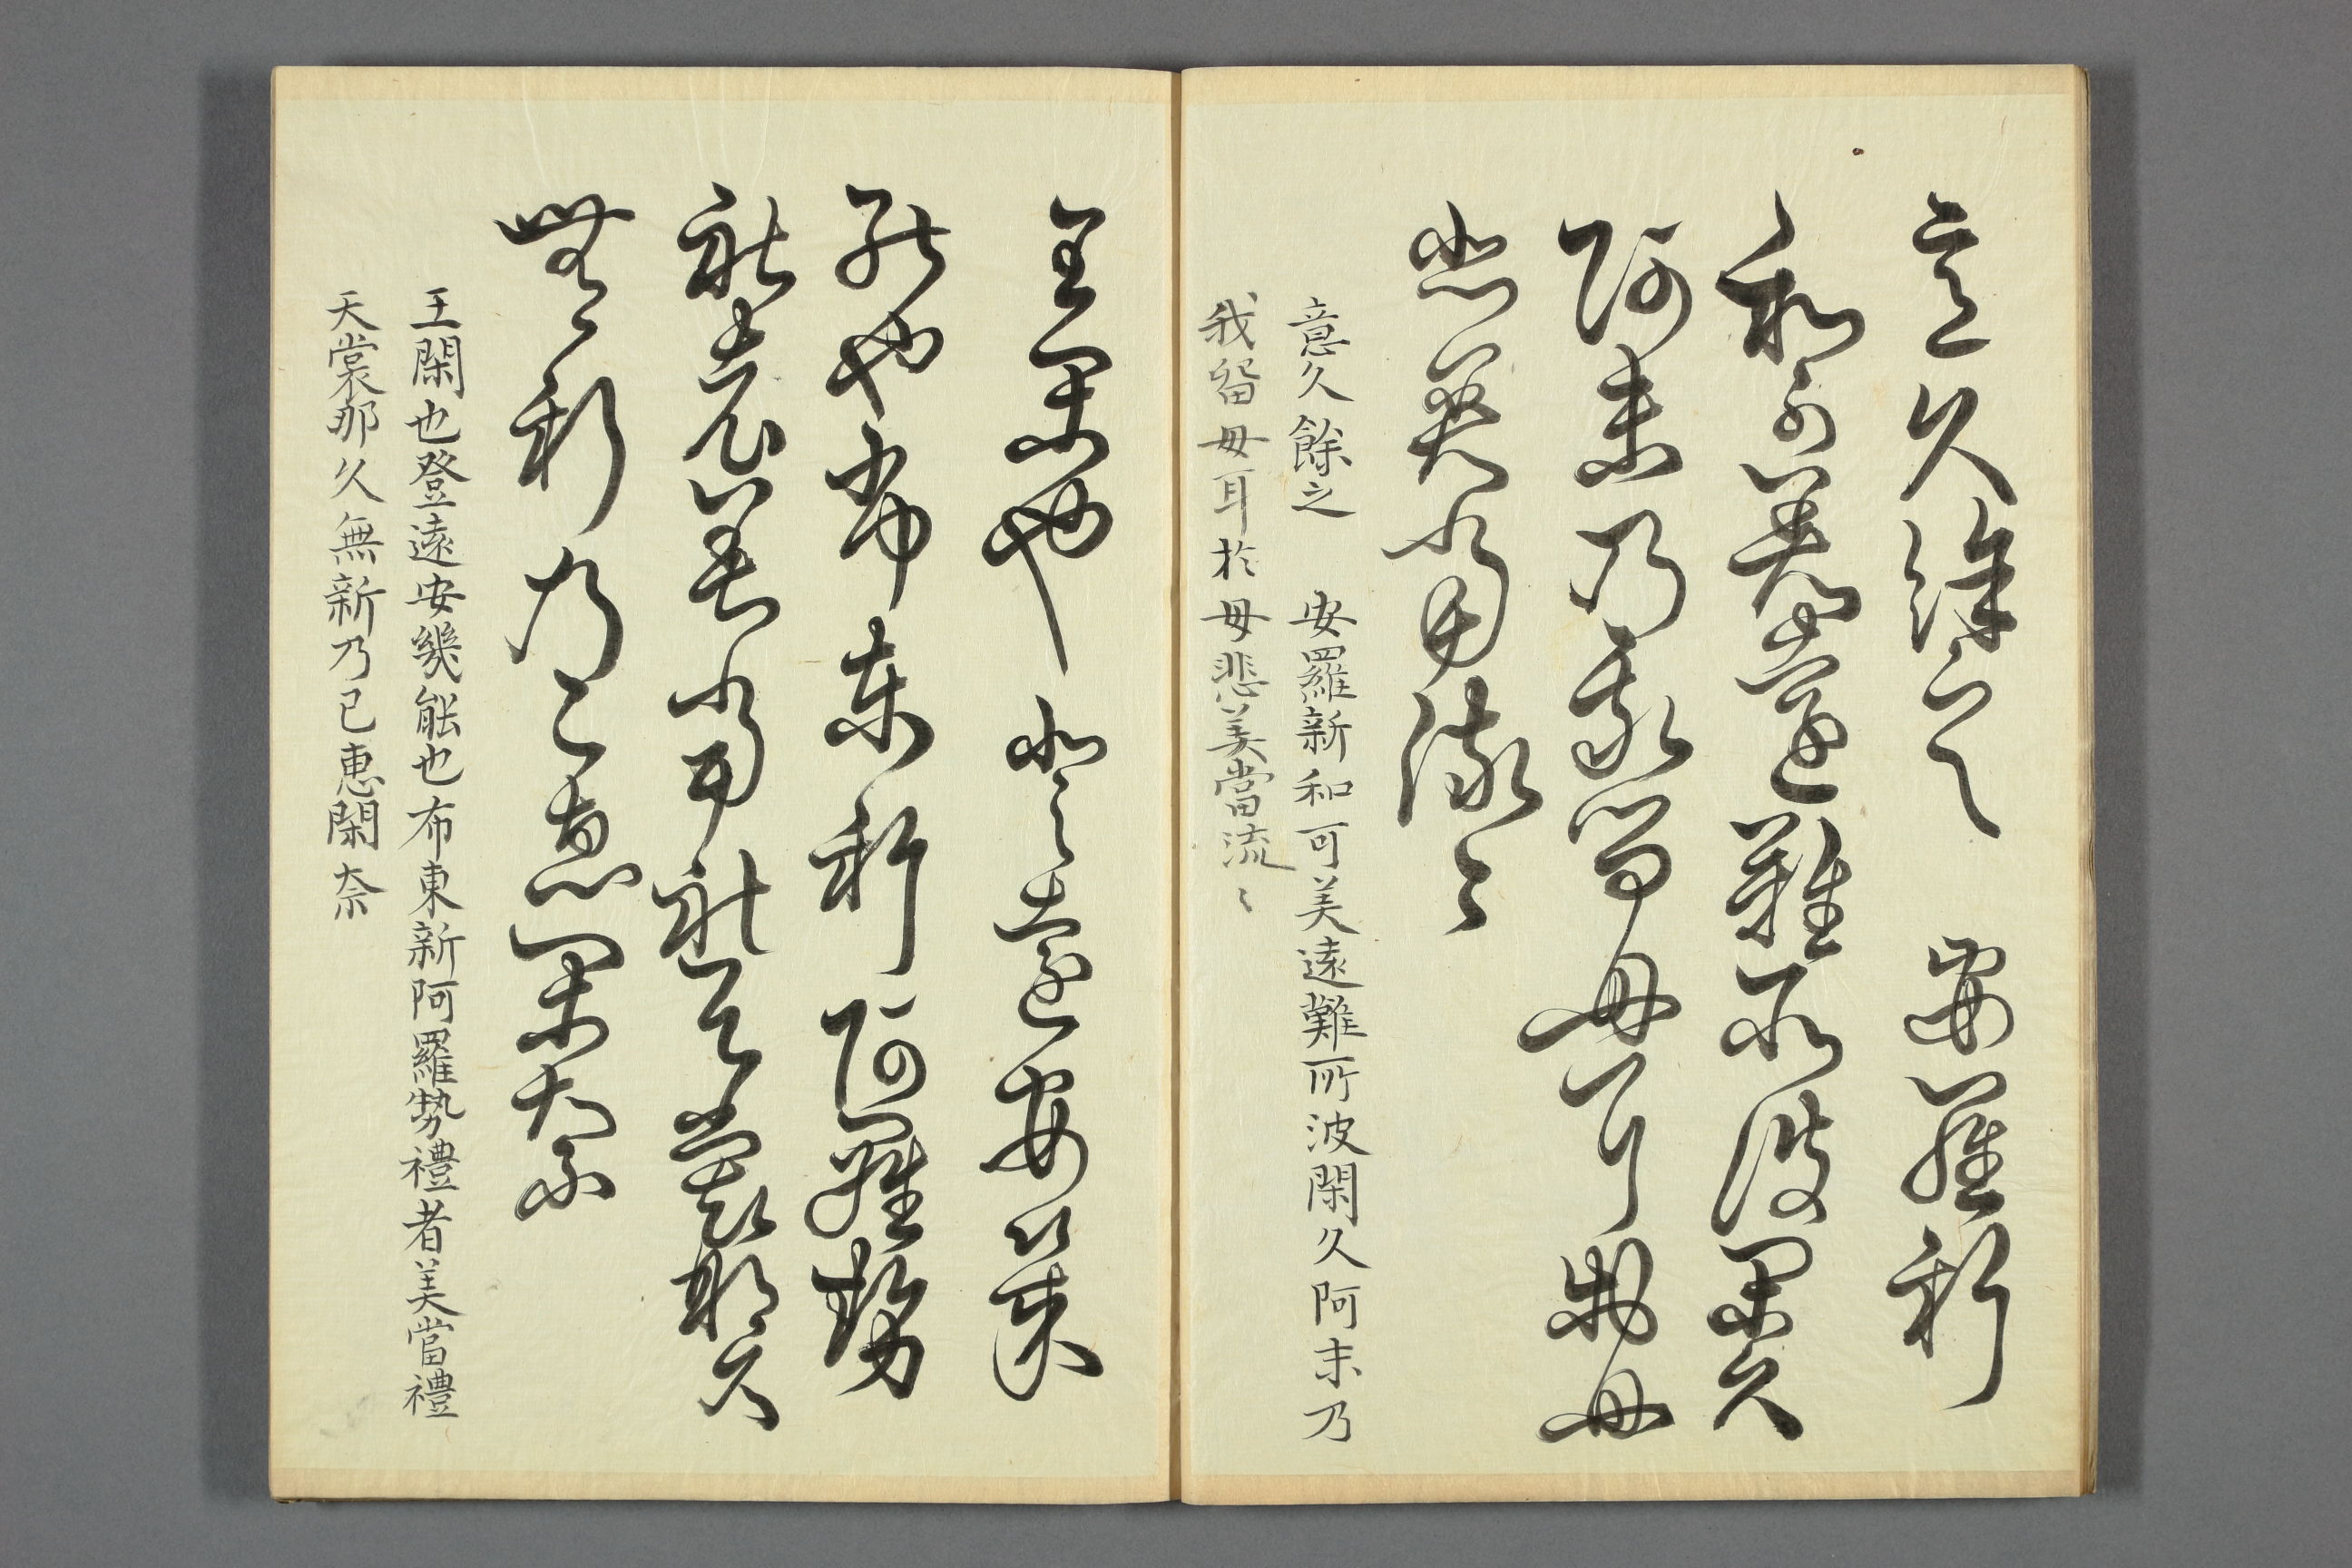 意久餘之　安羅新
和可美遠難所波閑久
阿末乃我留毋耳於毋
悲美當流〻
意久餘之　安羅新和可美遠難所波閑久阿末乃
我留毋耳於毋悲美當流〻
王閑也登遠安幾
能也布東新阿羅勢
禮者美當禮天裳那久
無新乃己恵閑奈
王閑也登遠安幾能也布東新阿羅勢禮者美當禮
天裳那久無新乃己恵閑奈